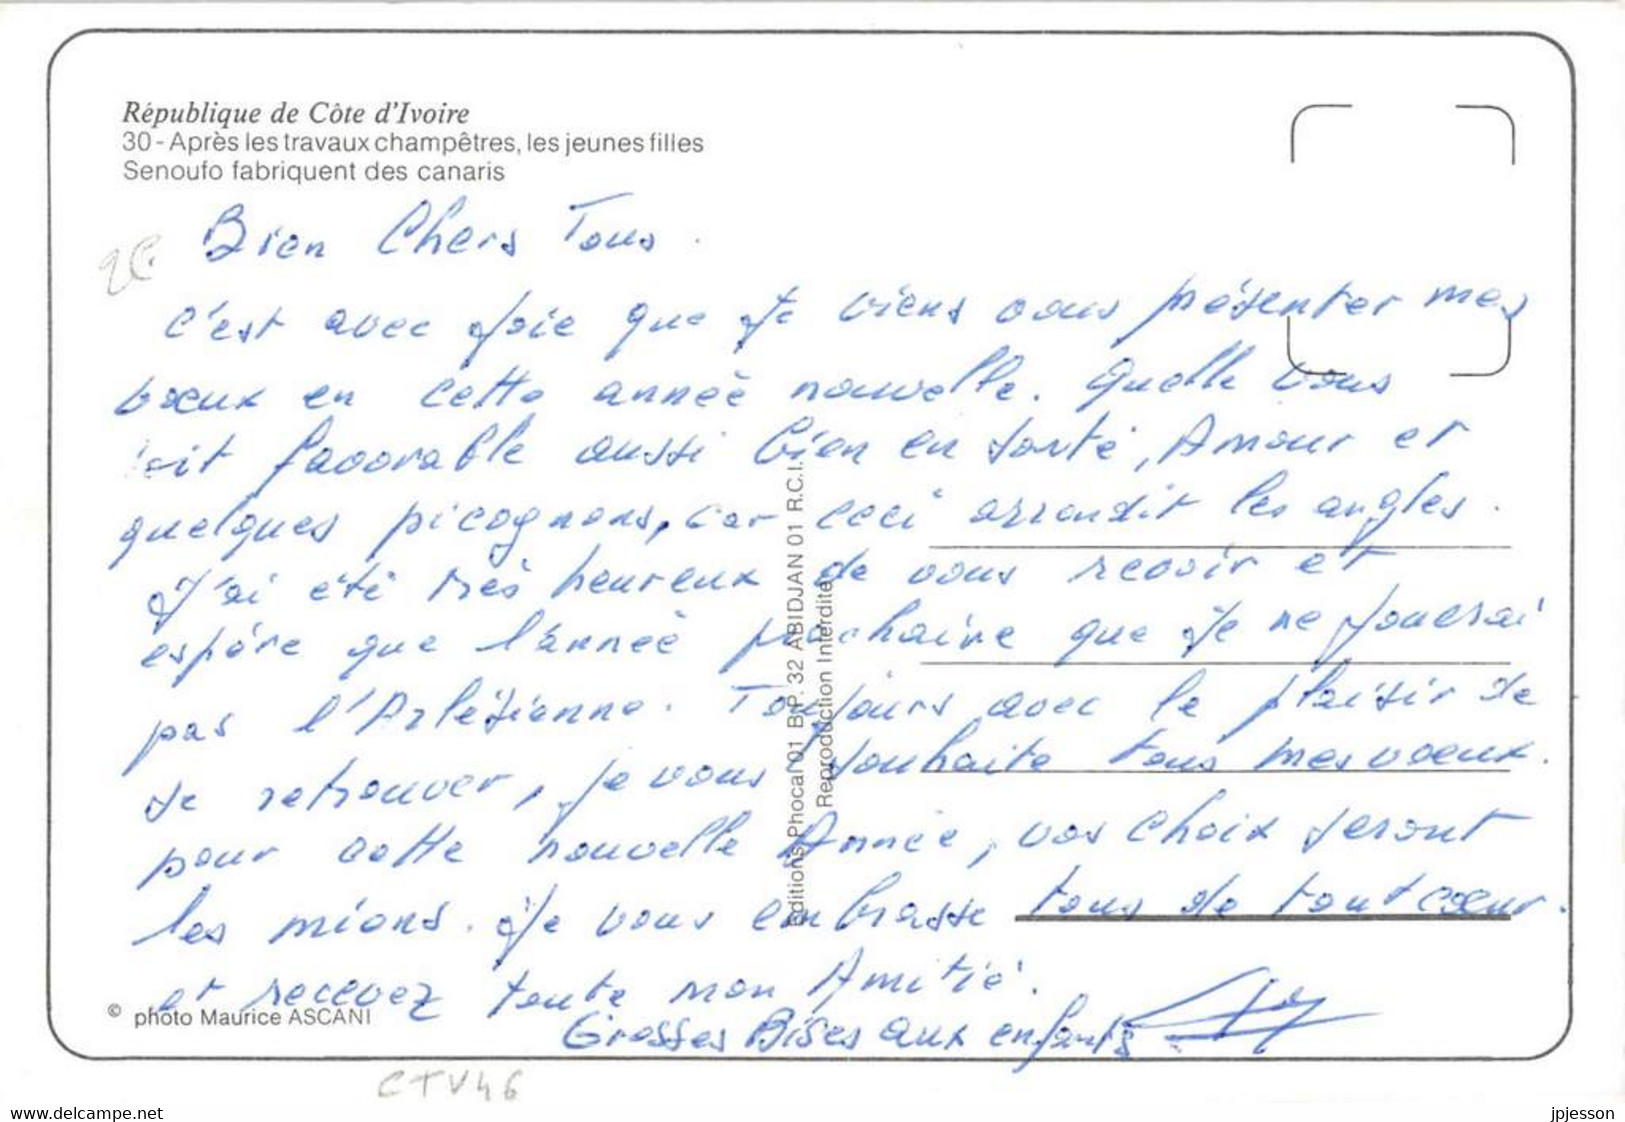 République de Côte d'Ivoire
30 - Après les travaux champêtres, les jeunes filles
Senoufo fabriquent des canaris
Bien Chers Tous.
C'est avec Joie que Je viens vous présenter mes
voeux en cette année nouvelle. Quelle vous
soit favorable aussi bien en santé, Amour et
quelques picognons, car ceci arrondit les angles.
J'ai été très heureux de vous revoir et
espère que l'année prochaine que Je ne Jouerai
pas l'Arlésienne. Toujours avec le plaisir de
se retrouver, je vous souhaite tous mes voeux.
pour cette nouvelle Année, vos choix seront
les miens. Je vous embrasse tous de tout coeur.
et recevez toute mon Amitié.
Grosses Bises aux enfants
Editions Phocal 01 B.P. 32 ABIDJAN 01 R.C.I.
Reproduction Interdite
© photo Maurice ASCANI
CTV46
www.delcampe.net
jpjesson